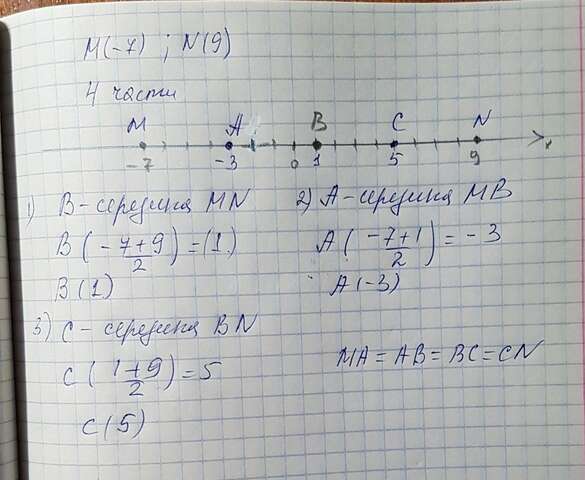 M(-7) ; N(9)
4 части
M A B C N
-7 -3 0 1 5 9 x
1) B - середина MN
B (-7+9/2) = (1)
B(1)
2) A - середина MB
A (-7+1/2) = -3
A(-3)
3) C - середина BN
C (1+9/2) = 5
C(5)
MA = AB = BC = CN